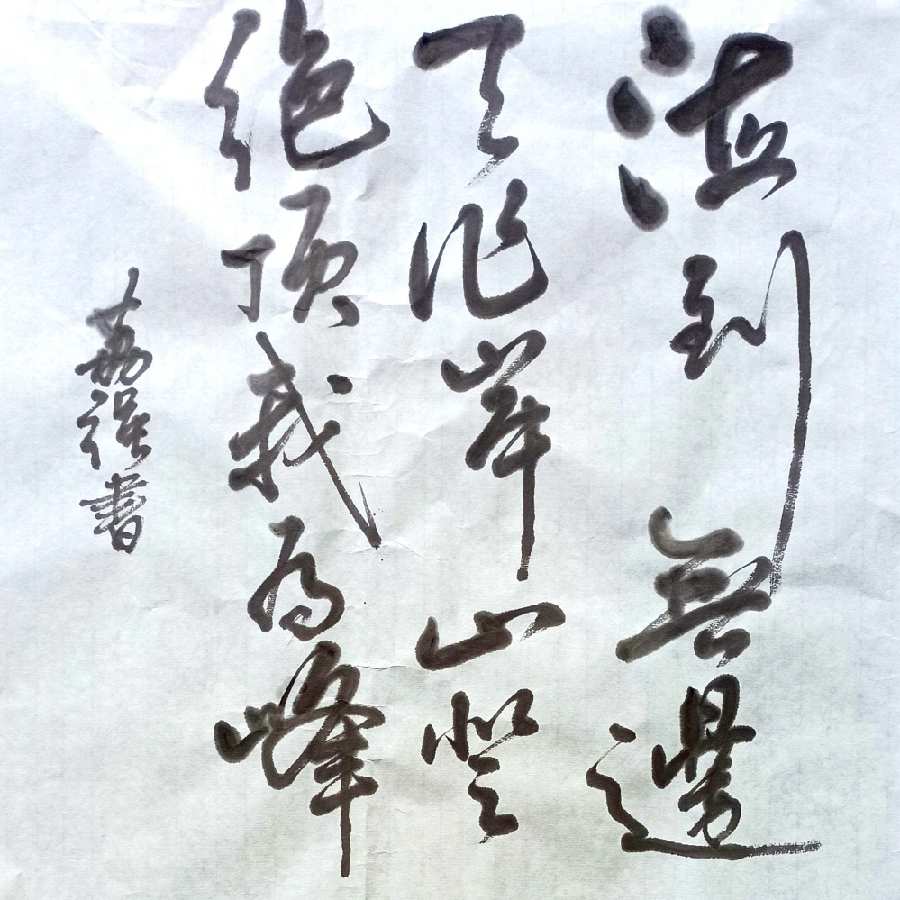 海到無邊
天作岸山登
絕頂我為峰
荔強書